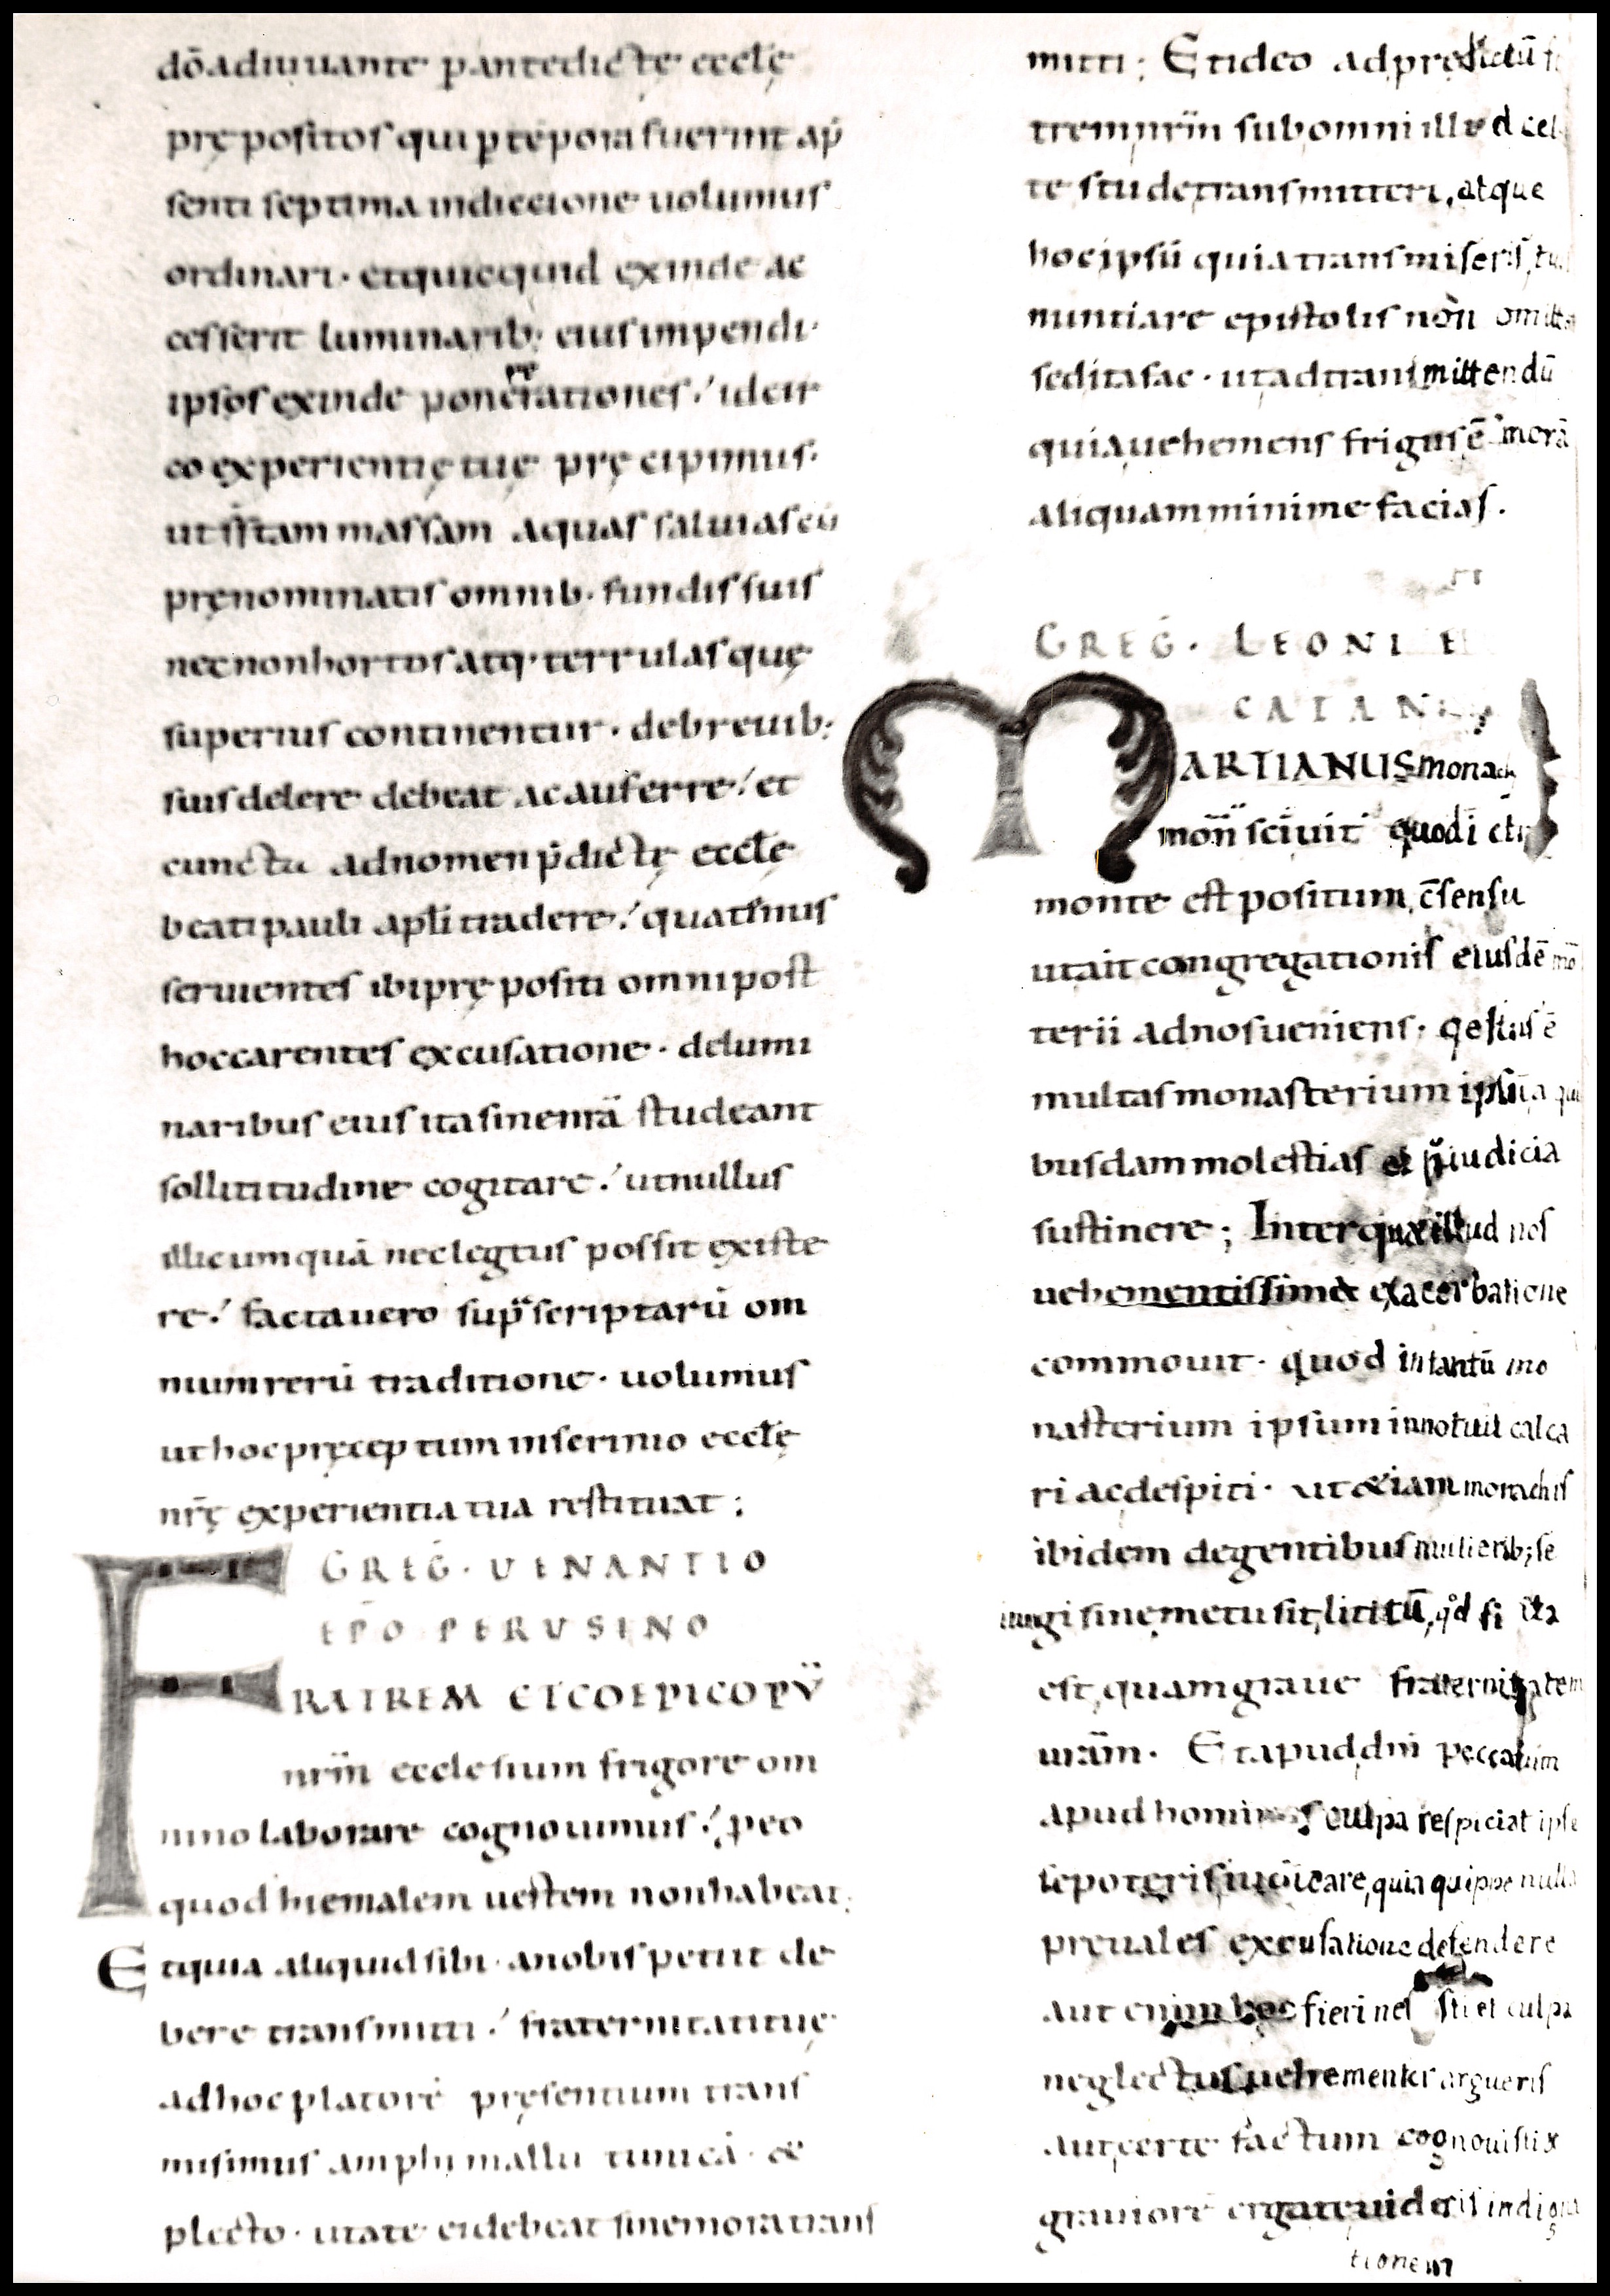 dō adiuuante p̄ antedictę eccl̄ę
prępositos qui p̱ tēpora fuerint a p̄
senti septima indiccione uolumus
ordinari · et quicquid exinde ac
cesserit luminarib; eius impendi ·
ipsos exinde ponere rationes ; idcir
co experientię tuę pręcipimus ·
ut s̄s̄tam massam aquas saluias cū
prenominatis omnib · fundis suis
nec non hortos atq · terrulas quę
superius continentur · de breuib;
suis delere debeat ac auferre ; et
cuncta ad nomen p̄dictę eccl̄ę
beati pauli apl̄i tradere ; quatenus
seruientes ibi prępositi omni post
hoc carentes excusatione · de lumi
naribus eius ita sine nrā studeant
sollicitudine cogitare ; ut nullus
illic umquā neclegtus possit existe
re ; facta uero sup̄scriptarū om
nium rerū traditione · uolumus
ut hoc pręceptum in scrinio eccl̄ę
nr̄ę experientia tua restituat ;
GREG̅ · UENANTIO
EP̄O PERUSINO
FRATREM ET COEPICOPŪ
nr̄m ecclesium frigore om
nino laborare cognouimus ; p eo
quod hiemalem uestem non habeat ;
Et quia aliquid sibi · a nobis petiit de
bere transmitti ; fraternitati tuę
ad hoc p latorē presentium trans
misimus amphimallū tunicā · &
plecto · ut a te ei debeat sine mora trans
mitti ; Et ideo ad predictū
trem nr̄m sub omni
te stude transmitteri, atque
hoc ipsū quia transmiseris,
nuntiare epistolis non
sed ita fac · ut ad transmittendū
quia uehemens frigus ē morā
aliquam minime facias .
GREG̅ · LEONI E
CATAN
MARTIANUS
mon̄ sciuit quod i
monte est positum, c̄sensu
ut ait congregationis eiusdē mō
terii ad nos ueniens · qestus ē
multas monasterium ipsū a qui
busdam molestias et p̄iudicia
sustinere ; Inter quę illud nos
uehementissime exacerbatione
commouit · quod in tantū mo
nasterium ipsum innotuit calca
ri ac despici · ut &iam monachis
ibidem degentibus mulierib; se
iungi sine metu sit licitū, qd si ita
est, quam graue fraternitatem
uram · Et apud dm̄ peccatum
apud homines culpa respiciat ipse
te poteris iudicare, quia quippe nulla
preuales excusatione defendere
aut enim hoc fieri nes sti et culpa
neglectus uehementer argueris
aut certe factum cognouisti &
grauiorē erga te uideris indigna
tionem